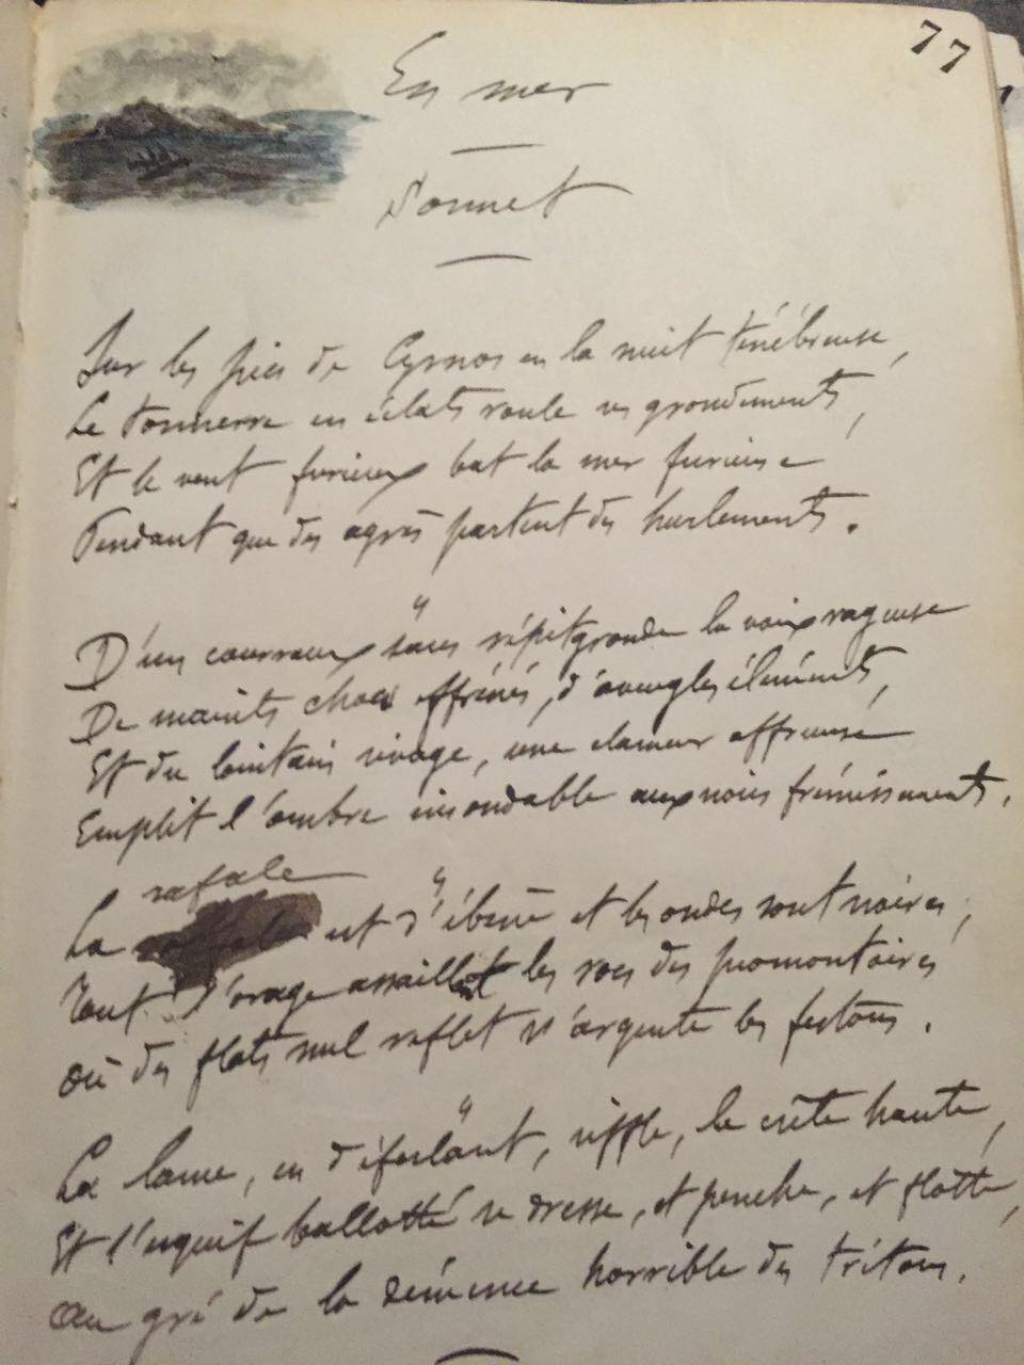 77
En mer
Sonnet
Sur les pics de Cyrnos en la nuit ténébreuse,
Le tonnerre en éclats roule ses grondements,
Et le vent furieux bat la mer furieuse
Pendant que des agrès partent des hurlements.
"
D'un courroux sans répit gronde la voix rageuse
De maints chocs effrénés, d'aveugles éléments,
Et du lointain rivage, une clameur affreuse
Emplit l'ombre insondable aux noirs frémissements.
"
rafale
La est d'ébène et les ondes sont noires,
Tout l'orage assaillit les rocs des promontoires
Où des flots nul reflet n'argente les festons.
"
La lame, en déferlant, siffle, la crête haute,
Et l'esquif ballotté se dresse, et penche, et flotte,
Au gré de la démence horrible des tritons.